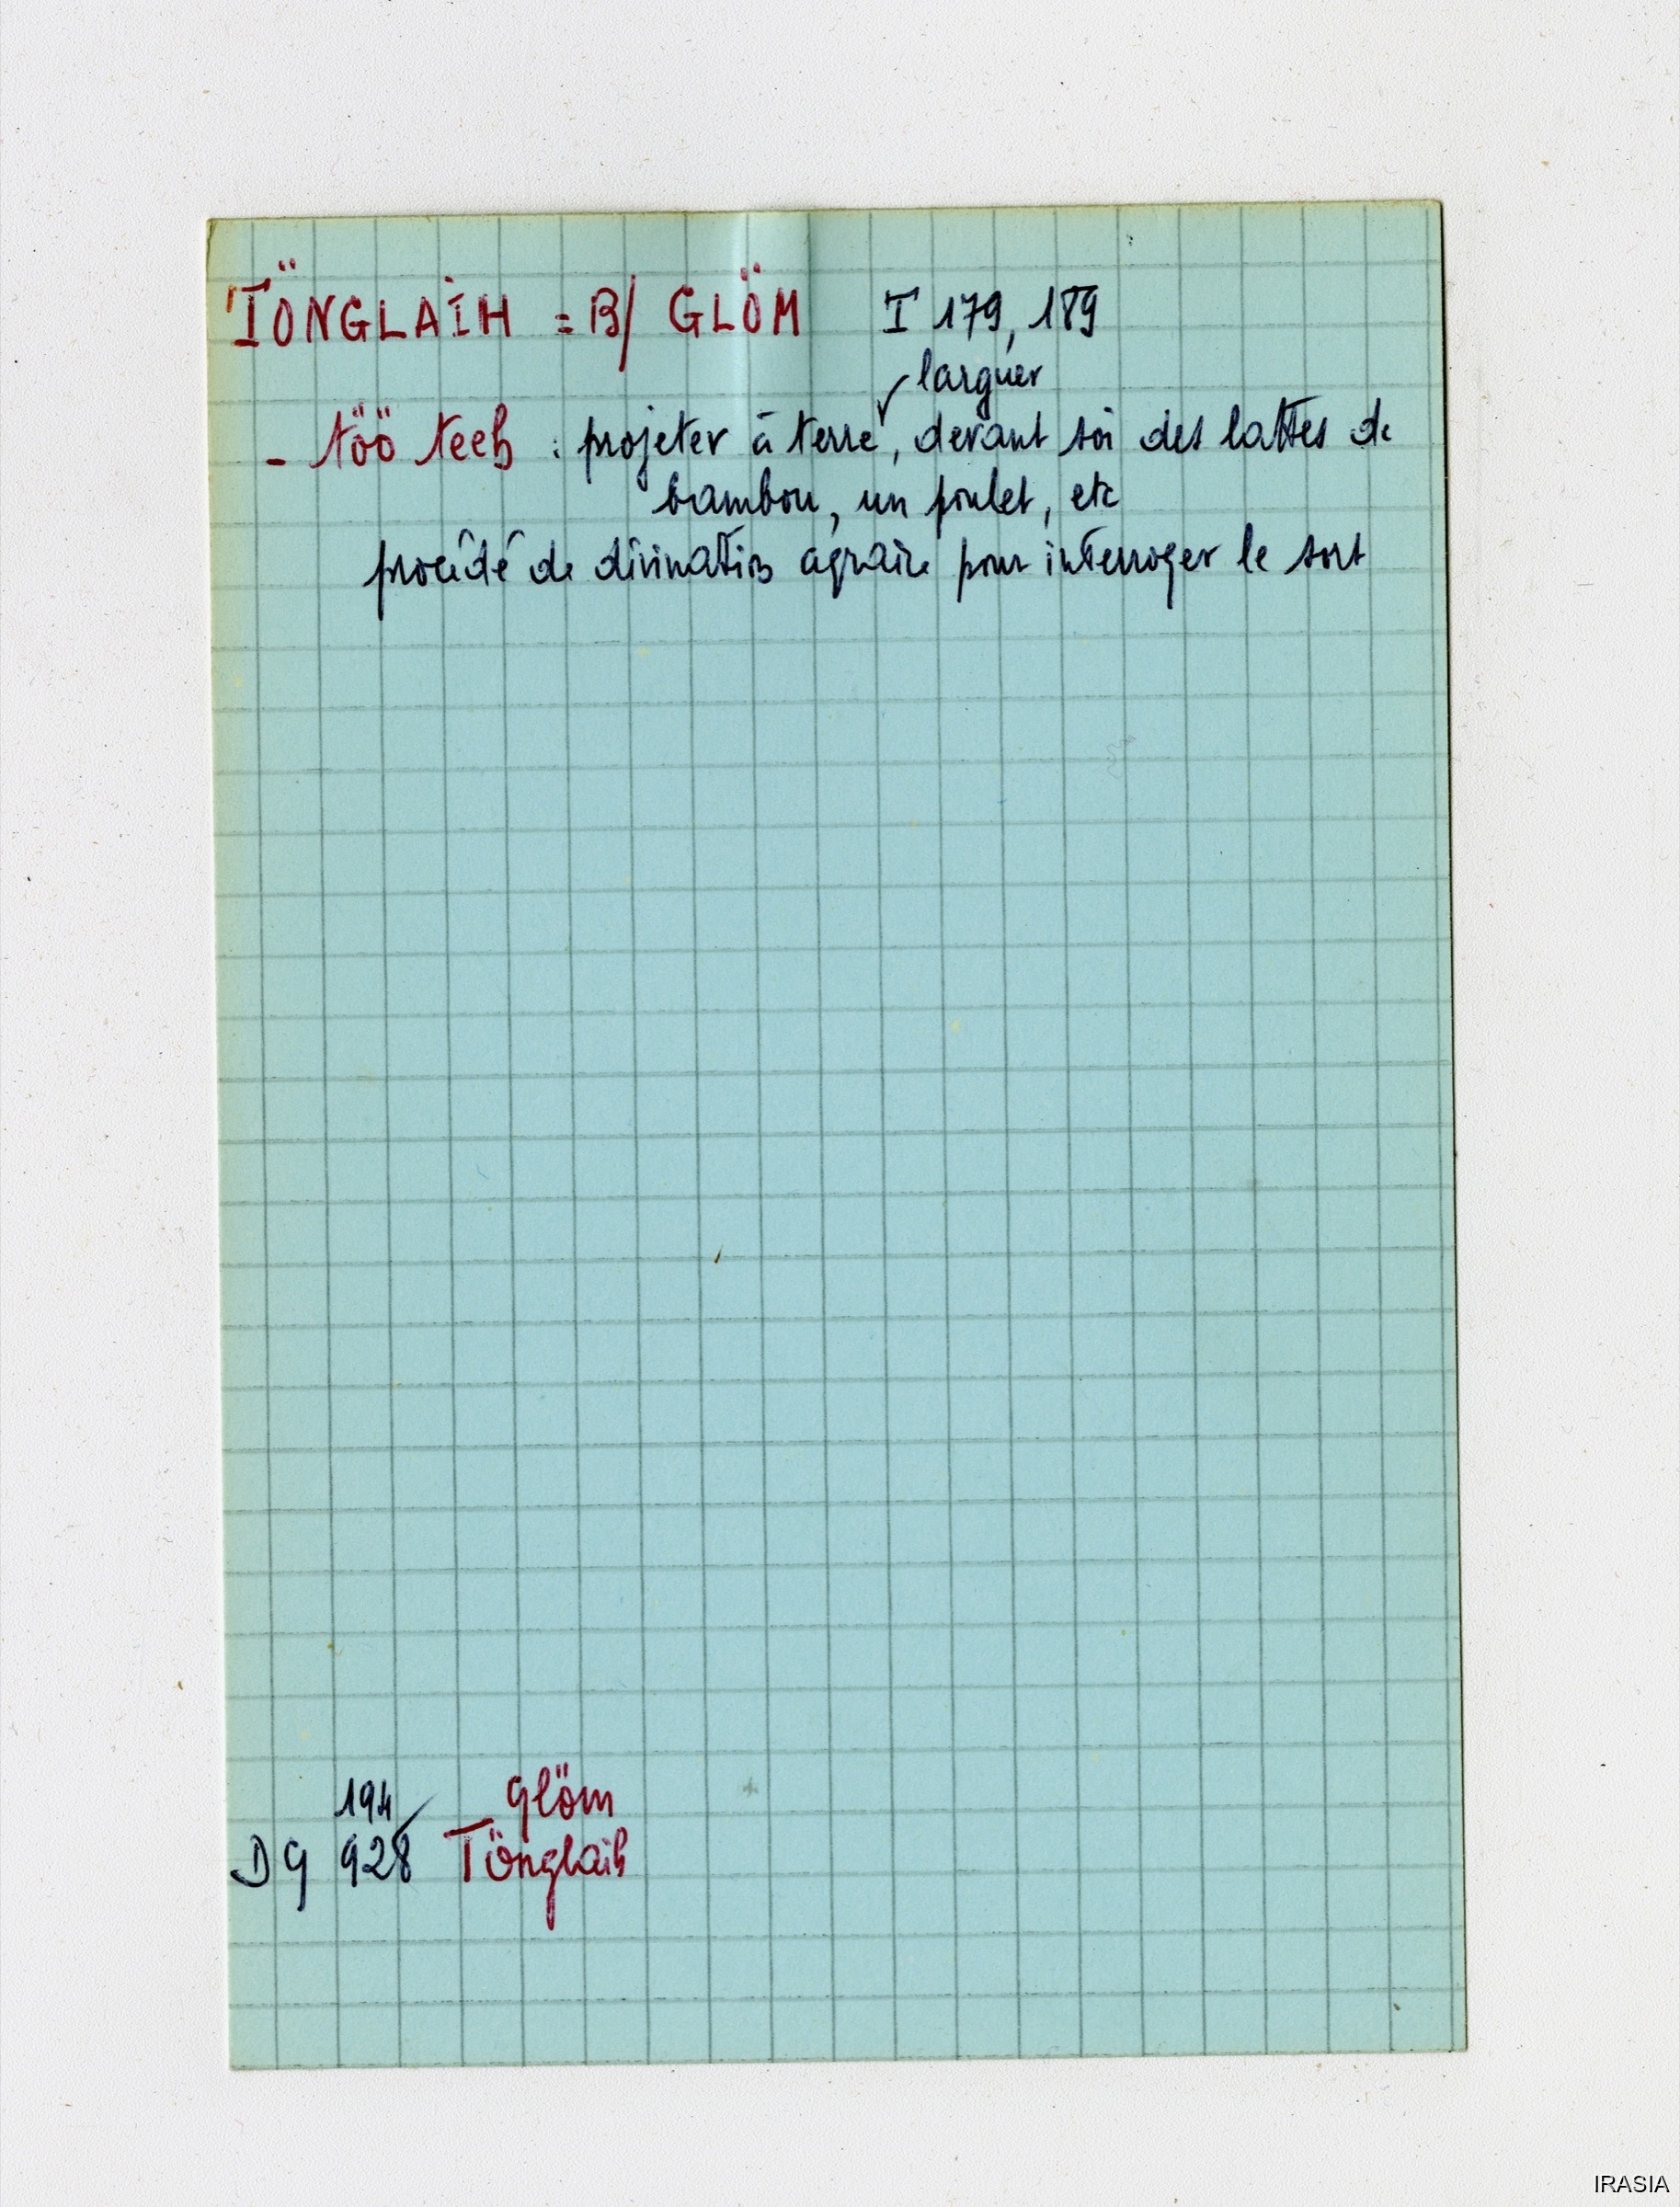 TÖNGLAIH = B/ GLÖM I 179, 189
larguer
- töö teeh : projeter à terre, devant soi des lattes de
bambou, un poulet, etc
procédé de divination agraire pour interroger le sort
194 glöm
DG 928 Tönglaih
IRASIA